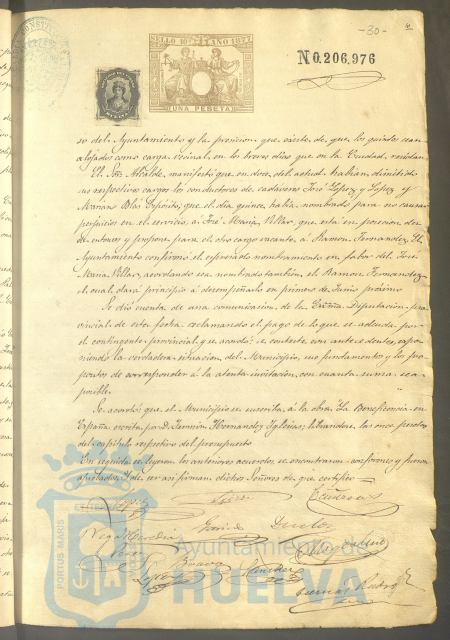 -30-
SELLO 10º AÑO 1877
N0.206,976
UNA PESETA
so del Ayuntamiento y la precision que existe de que los quintos sean
alojados como carga vecinal, en los breves dias que en la Ciudad, residan
El Sor. Alcalde, manifestó que en doce del actual habian dimitido
sus respectivos cargos los conductores de cadaveres José Lopez y Lopez y
Mariano Blas Espósito, que el dia quince habia nombrado para no causar
perjuicios en el servicio, á José Maria Villar, que está en posesion des-
de entonces y propone para el otro cargo vacante, á Ramon Fernandez El
Ayuntamiento confirmó el espresado nombramiento en fabor del José
Maria Villar, acordando sea nombrado tambien, el Ramon Fernandez
el cual dará principio á desempeñarlo en primero de Junio próximo
Se dió cuenta de una comunicacion de la Excma. Diputacion pro-
vincial de esta fecha reclamando el pago de lo que se adeuda por
el contingente provincial y se acordó: se conteste con antecedentes, espo-
niendo la verdadera situacion del Municipio, sus fundamentos y los pro-
pósitos de corresponder á la atenta invitacion con cuanta suma sea
posible.
Se acordó que el Municipio se suscriba á la obra "La Beneficencia en
España escrita por D. Fermin Hernandez Iglesias, librandose las once pesetas
del capítulo respectivo del presupuesto
En seguida se leyeron los anteriores acuerdos se encontraron conformes y fueron
aprobados. Y de ser asi firman dichos Señores de que certifico=
Garrido
Duclos
PORTUS MARIS
Ayuntamiento de
HUELVA